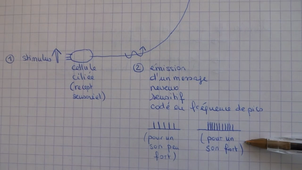 ① stimulus
cellule
ciliée
(récept
sensoriel)
② émission
d'un message
nerveux
sensitif
codé en fréquence de pots
(pour un
son peu
fort)
(pour un
son fort)